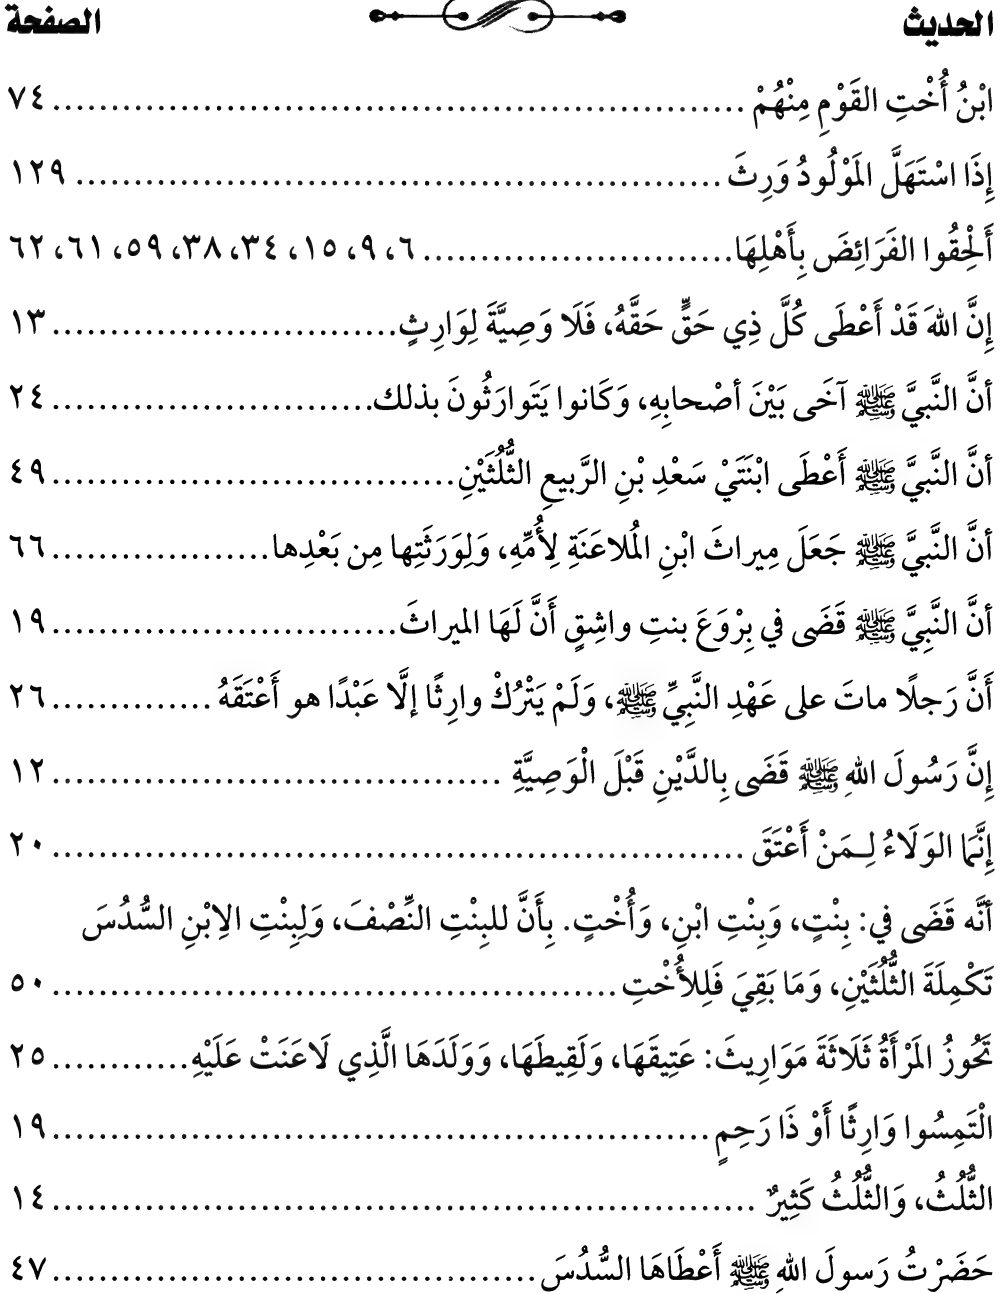 الحديث الصفحة
ابْنُ أُخْتِ القَوْمِ مِنْهُمْ ........ ٧٤
إِذَا اسْتَهَلَّ المَوْلُودُ وَرِثَ ........ ١٢٩
أَلْحِقُوا الفَرَائِضَ بِأَهْلِهَا ........ ٦، ٩، ١٥، ٣٤، ٣٨، ٥٩، ٦١، ٦٢
إِنَّ اللهَ قَدْ أَعْطَى كُلَّ ذِي حَقٍّ حَقَّهُ، فَلَا وَصِيَّةَ لِوَارِثٍ ........ ١٣
أنَّ النَّبيَّ ﷺ آخَى بَيْنَ أصْحابِهِ، وَكَانوا يَتَوارَثُونَ بذلك ........ ٢٤
أنَّ النَّبيَّ ﷺ أَعْطَى ابْنَتَيْ سَعْدِ بْنِ الرَّبيعِ الثُّلُثَيْنِ ........ ٤٩
أنَّ النَّبيَّ ﷺ جَعَلَ مِيراثَ ابْنِ المُلاعَنَةِ لِأُمِّهِ، وَلِوَرَثَتِها مِن بَعْدِها ........ ٦٦
أنَّ النَّبِيَّ ﷺ قَضَى في بِرْوَعَ بنتِ واشِقٍ أَنَّ لَهَا الميراثَ ........ ١٩
أَنَّ رَجلًا ماتَ على عَهْدِ النَّبِيِّ ﷺ، وَلَمْ يَتْرُكْ وارِثًا إلَّا عَبْدًا هو أَعْتَقَهُ ........ ٢٦
إِنَّ رَسُولَ اللهِ ﷺ قَضَى بِالدَّيْنِ قَبْلَ الْوَصِيَّةِ ........ ١٢
إِنَّمَا الوَلَاءُ لِـمَنْ أَعْتَقَ ........ ٢٠
أنَّه قَضَى في: بِنْتٍ، وَبِنْتِ ابْنِ، وَأُخْتٍ. بِأَنَّ للبِنْتِ النِّصْفَ، وَلِبِنْتِ الِابْنِ السُّدُسَ
تَكْمِلَةَ الثُّلُثَيْنِ، وَمَا بَقِيَ فَلِلأُخْتِ ........ ٥٠
تَحُوزُ المَرْأَةُ ثَلَاثَةَ مَوَارِيثَ: عَتِيقَهَا، وَلَقِيطَهَا، وَوَلَدَهَا الَّذِي لَاعَنَتْ عَلَيْهِ ........ ٢٥
الْتَمِسُوا وَارِثًا أَوْ ذَا رَحِمٍ ........ ١٩
الثُّلُثُ، وَالثُّلُثُ كَثِيرٌ ........ ١٤
حَضَرْتُ رَسولَ اللهِ ﷺ أَعْطَاهَا السُّدُسَ ........ ٤٧